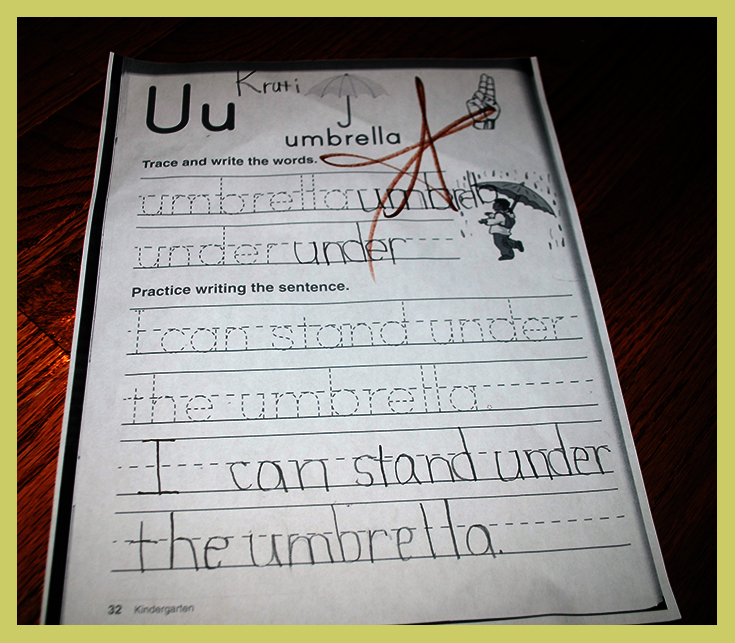 Uu Kruti
umbrella
Trace and write the words.
umbrella umbrella
under under
Practice writing the sentence.
I can stand under
the umbrella.
I can stand under
the umbrella.
32 Kindergarten